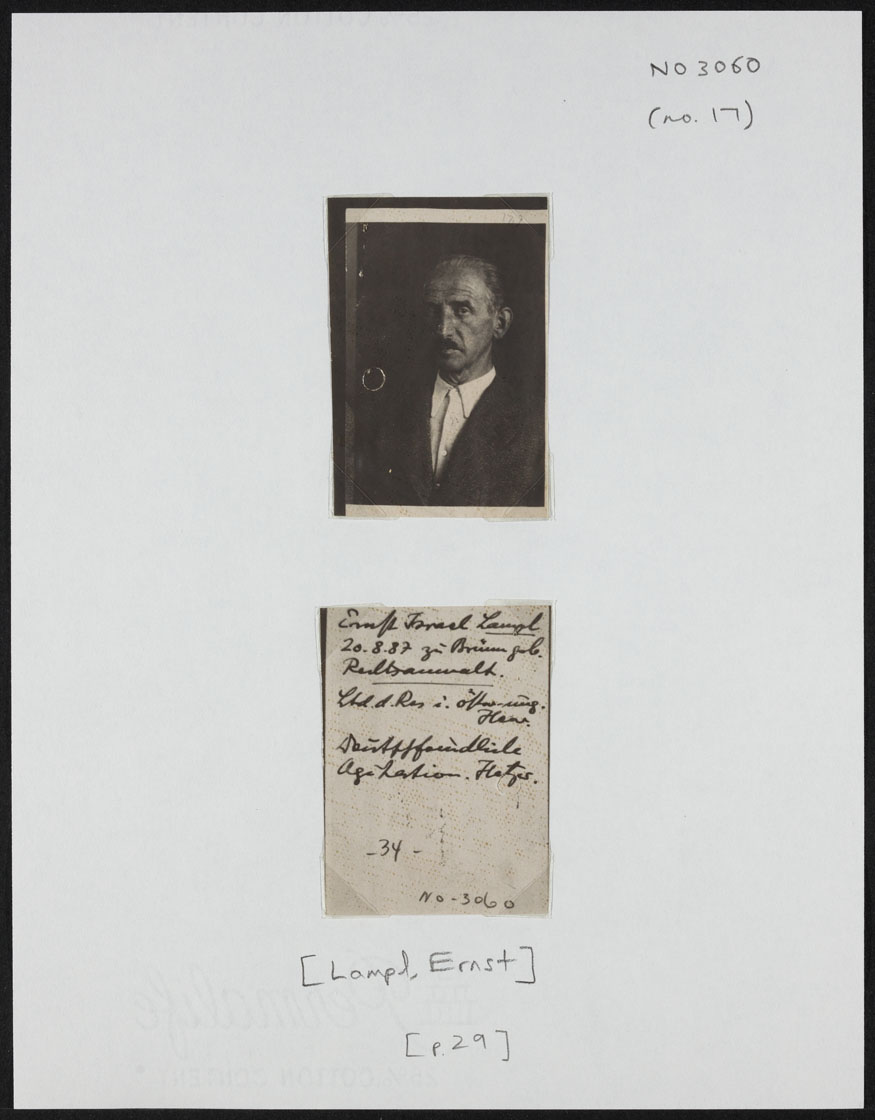 NO 3060
(no. 17)
Ernst Israel Lampl
20.8.87 zu Brünn geb.
Rechtsanwalt.
Ltd.d.Res i.
Deutschfeindliche
Agitation. Hetzer.
-34-
NO-3060
[Lampl, Ernst]
[p.29]